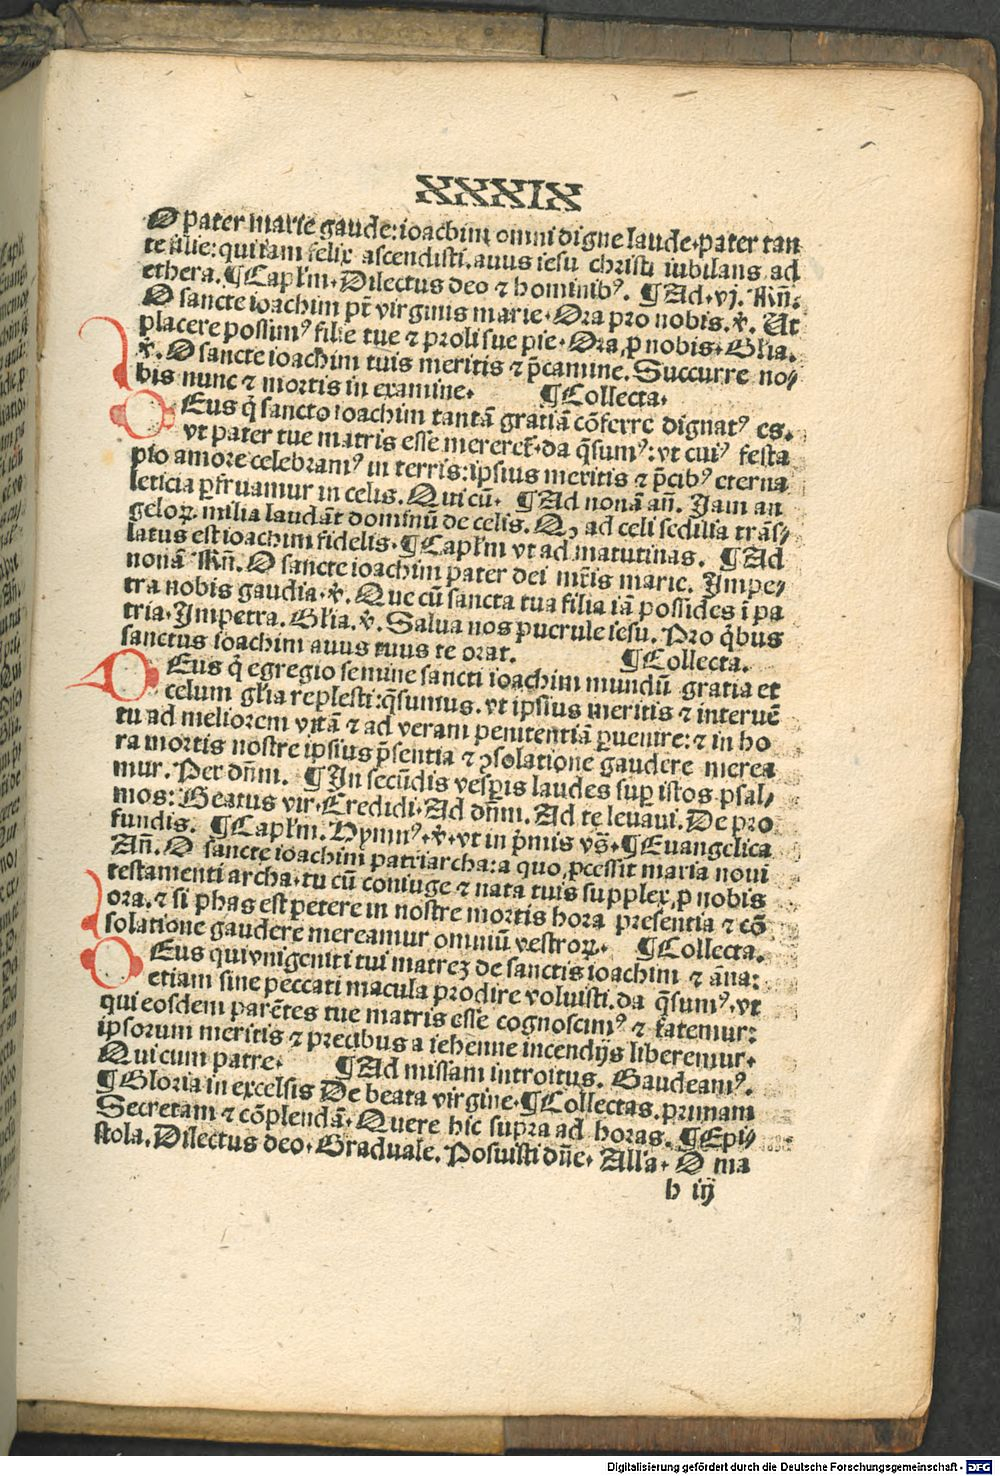 XXXIX
O pater marie gaude: ioachim omni digne laude. pater tan
te filie: qui tam felix ascendisti. auus iesu christi iubilans ad
ethera. ¶ Capl'm. Dilectus deo ⁊ hominibꝰ. ¶ Ad. vj. Añ.
O sancte ioachim pr̄ virginis marie. Ora pro nobis. ℣. Ut
placere possimꝰ filie tue ⁊ proli sue pie. Ora ꝓ nobis. Gl'ia.
℣. O sancte ioachim tuis meritis ⁊ p̄camine. Succurre no⸗
bis nunc ⁊ mortis in examine. ¶ Collecta.
DEus q̇ sancto ioachim tantā gratiā cōferre dignatꝰ es.
vt pater tue matris esse mereret̄. da q̄sumꝰ: vt cuiꝰ festa
pio amore celebramꝰ in terris: ipsius meritis ⁊ p̄cibꝰ eterna
leticia ꝑfruamur in celis. Qui cū. ¶ Ad nonā añ. Jam an
geloꝝ milia laudāt dominū de celis. Qꝫ ad celi sedilia trās⸗
latus est ioachim fidelis. ¶ Capl'm vt ad matutinas. ¶ Ad
nonā Añ. O sancte ioachim pater dei mr̄is marie. Jmpe⸗
tra nobis gaudia. ℣. Que cū sancta tua filia iā possides ī pa
tria. Jmpetra. Gl'ia. ℣. Salua nos puerule iesu. Pro q̇bus
sanctus ioachim auus tuus te orat. ¶ Collecta.
DEus q̇ egregio semine sancti ioachim mundū gratia et
celum gl'ia replesti: q̄sumus. vt ipsius meritis ⁊ interuē
tu ad meliorem vitā ⁊ ad veram penitentiā ꝑuenire: ⁊ in ho
ra mortis nostre ipsius p̄sentia ⁊ ↄsolatione gaudere merea
mur. Per dn̄m. ¶ Jn secūdis vesꝑis laudes suꝑ istos psal⸗
mos: Beatus vir. Credidi. Ad dn̄m. Ad te leuaui. De pro
fundis. ¶ Capl'm. Hymnꝰ. ℣. vt in p̄mis vs̄. ¶ Euangelica
Añ. O sancte ioachim patriarcha: a quo ꝓcessit maria noui
testamenti archa. tu cū coniuge ⁊ nata tuis supplex ꝓ nobis
ora. ⁊ si phas est petere in nostre mortis hora presentia ⁊ cō
solatione gaudere mereamur omniū vestroꝝ. ¶ Collecta.
DEus qui vnigeniti tui matreꝫ de sanctis ioachim ⁊ āna:
etiam sine peccati macula prodire voluisti. da q̄sumꝰ. vt
qui eosdem parētes tue matris esse cognoscimꝰ ⁊ fatemur:
ipsorum meritis ⁊ precibus a iehenne incendijs liberemur.
Qui cum patre. ¶ Ad missam introitus. Gaudeamꝰ.
¶ Gloria in excelsis De beata virgine. ¶ Collectas. primam
Secretam ⁊ cōplendā. Quere hic supra ad horas. ¶ Epi⸗
stola. Dilectus deo. Graduale. Posuisti dn̄e. All'a. O ma
h iij
Digitalisierung gefördert durch die Deutsche Forschungsgemeinschaft - DFG